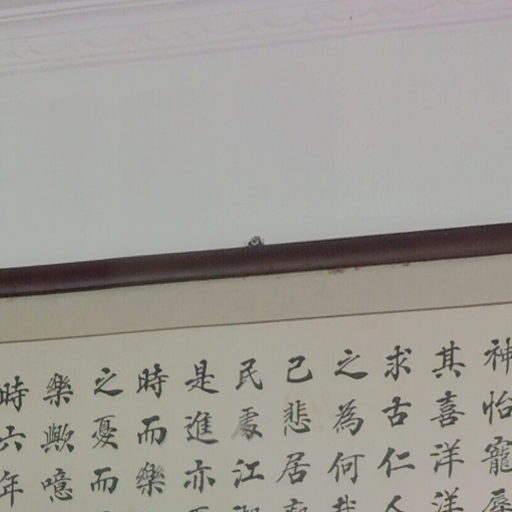 神怡寵辱
其喜洋洋
求古仁人
之為何哉
己悲居廟
民處江湖
是進亦
時而樂
之憂而
樂歟噫
時六年